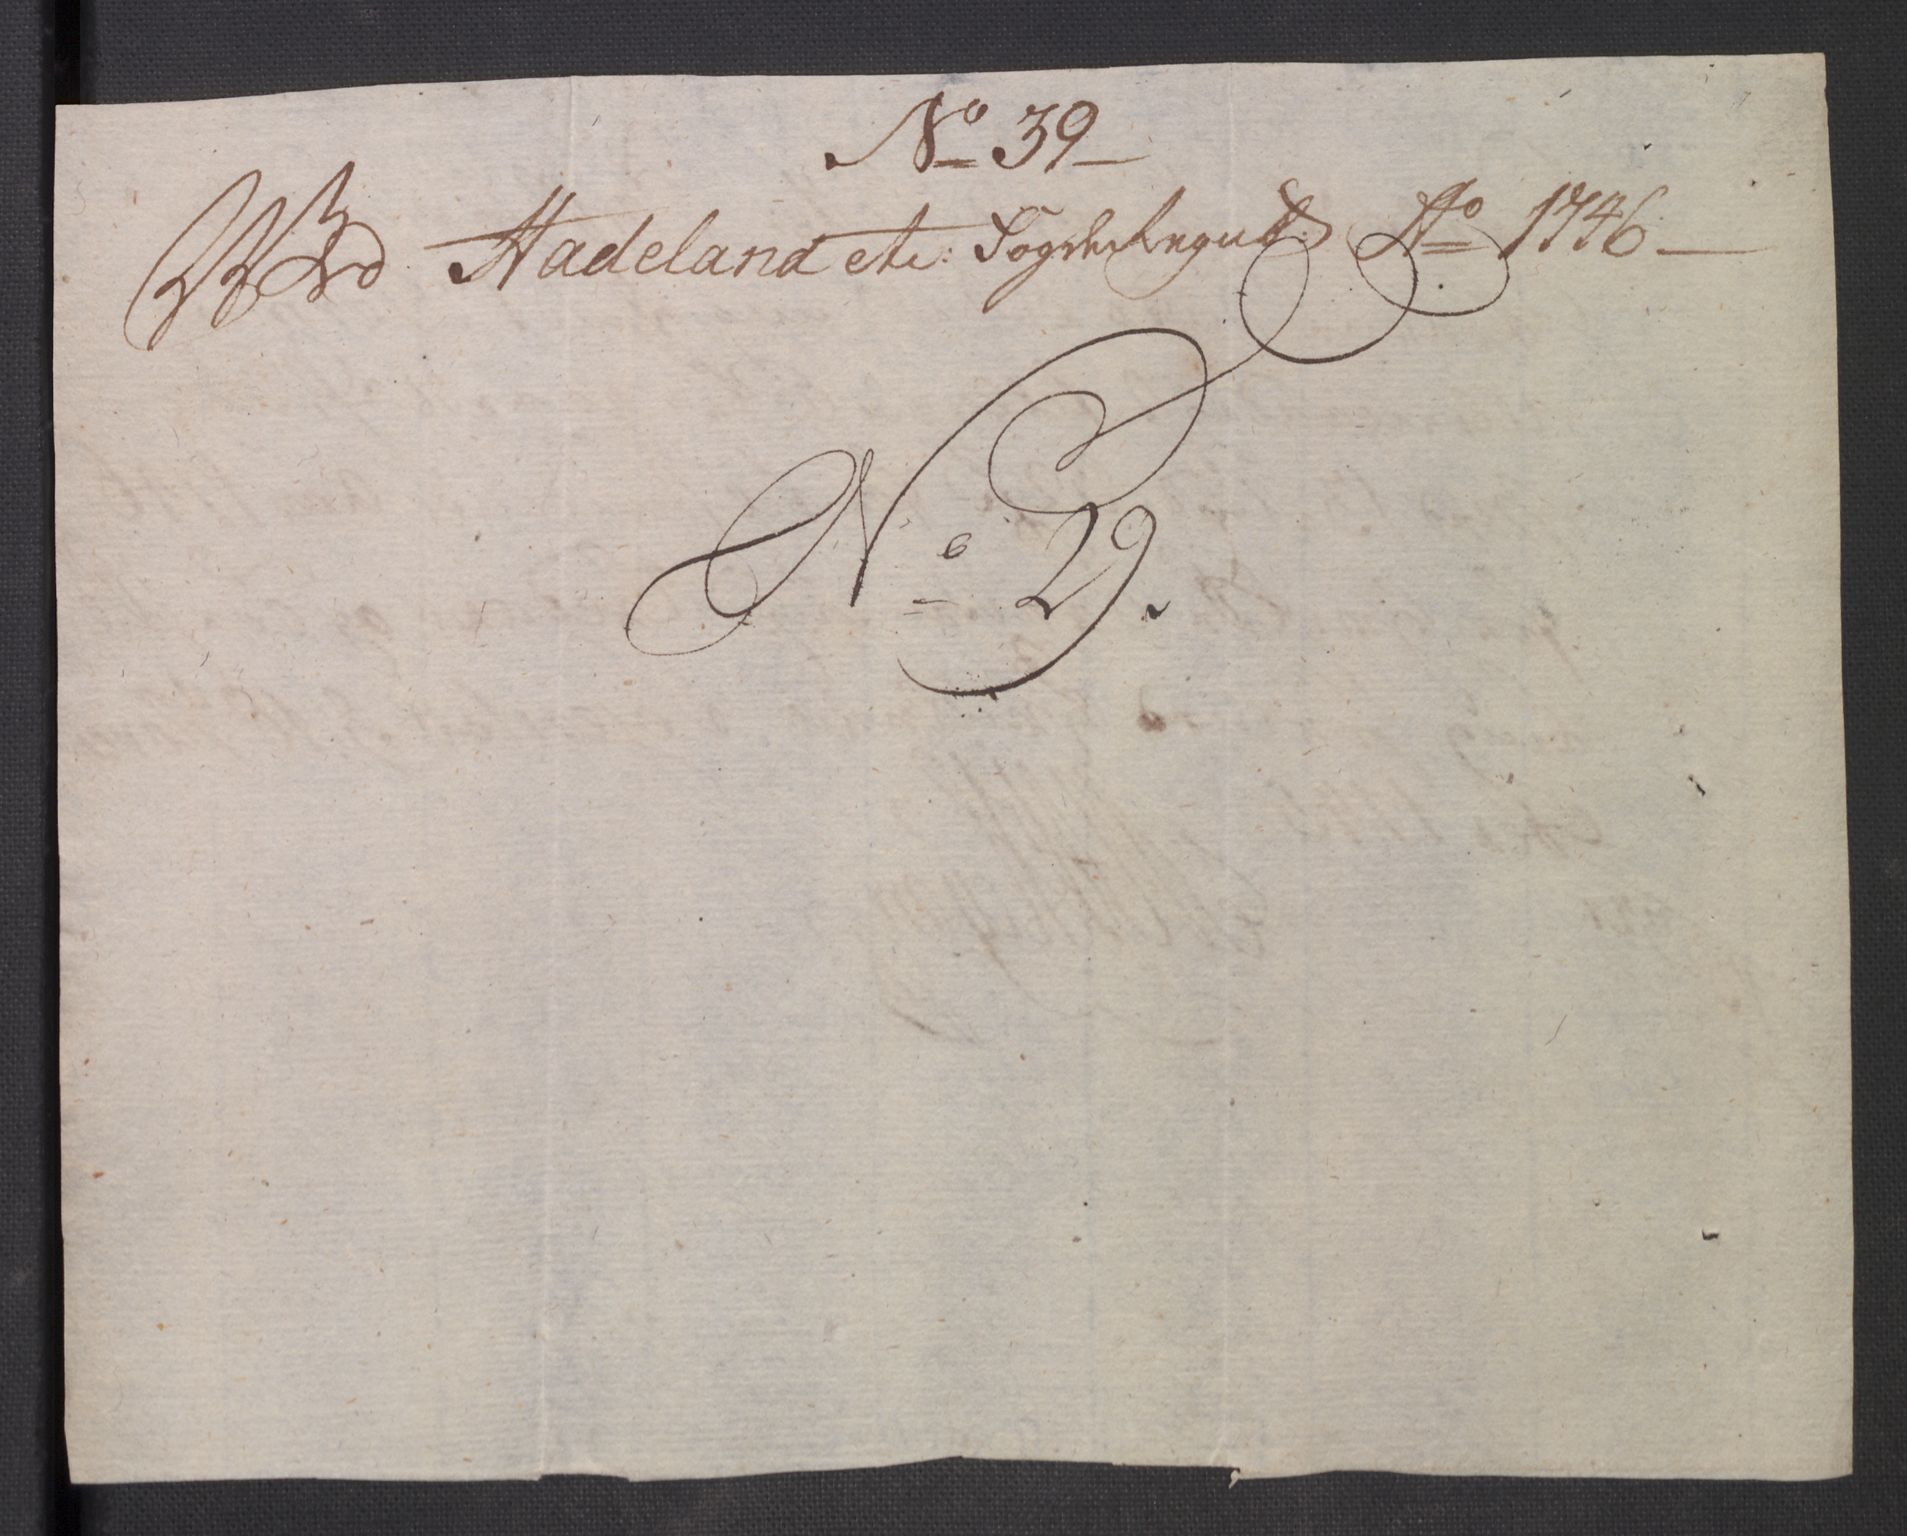 No 39
Wed Hadeland etc: Fogderiregnsk: Ao 1746
No 29.